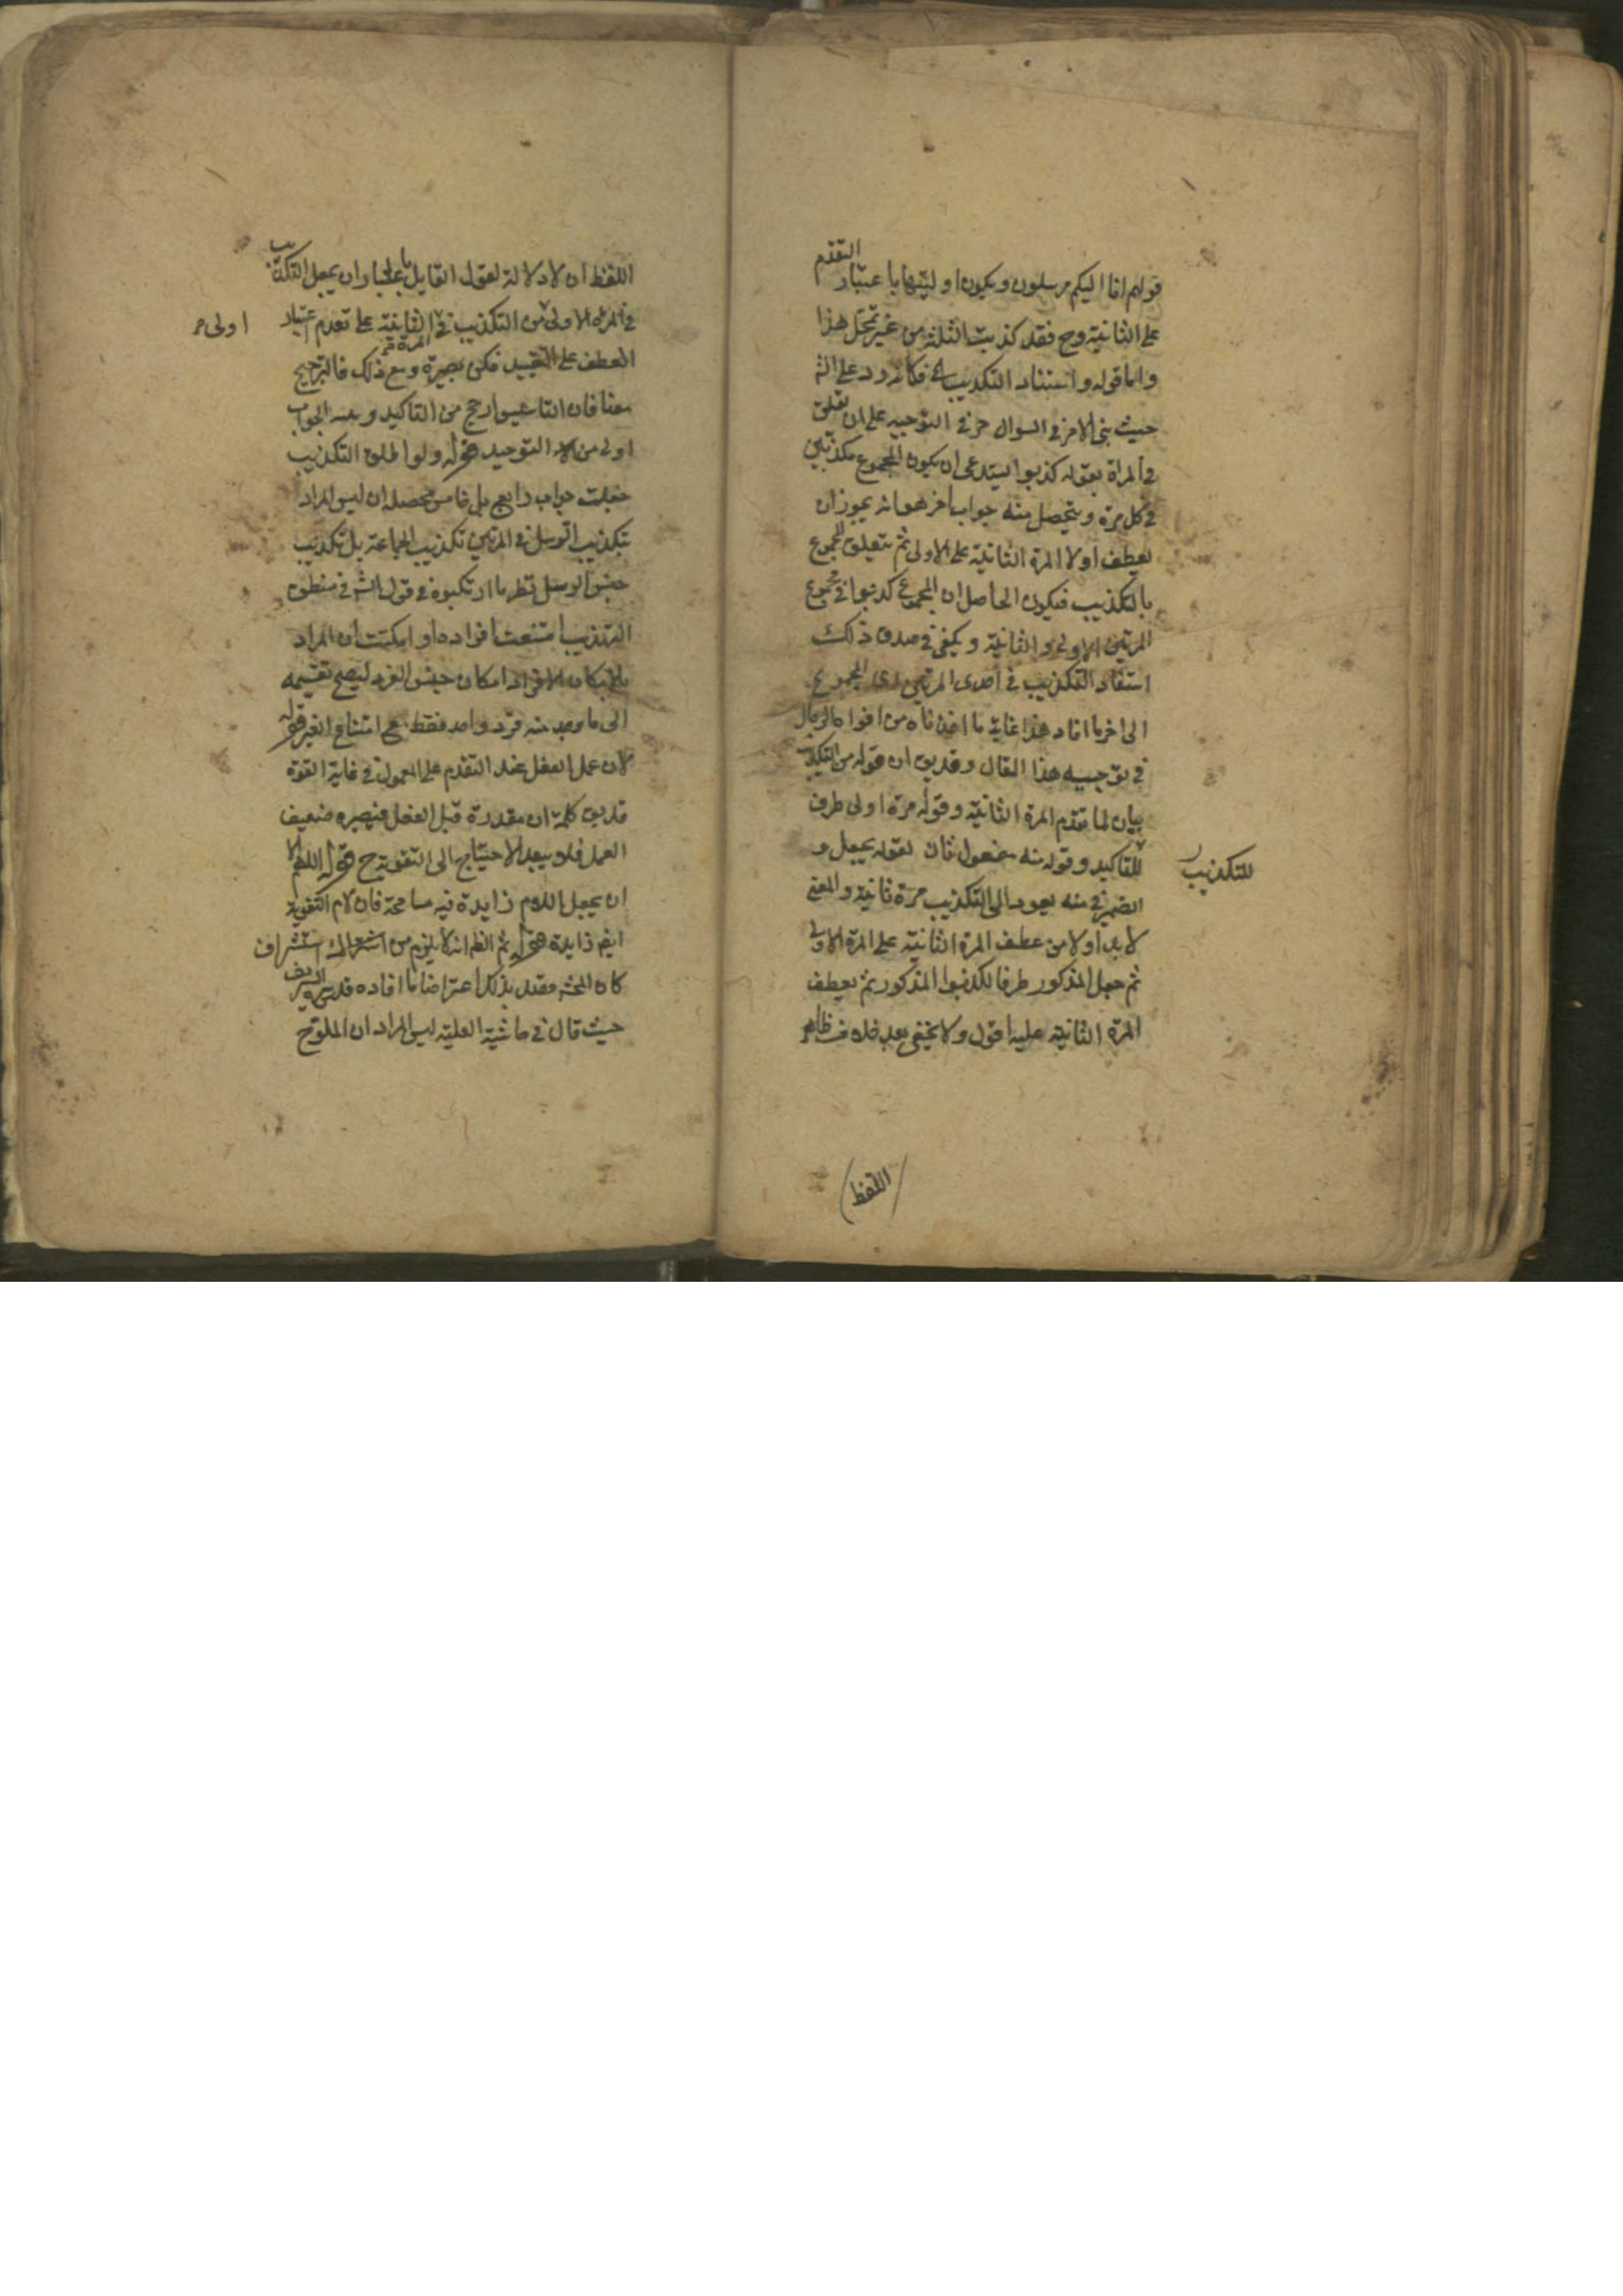 قولهم انا اليكم مرسلون ويكون اوليتها باعتبار التقدم
على الثانية وح فقد كذبت الثلثة من غير تمحل هذا
واما قوله واستناد التكذيب الخ فكانه رد على الش
حيث بنى الامر في السوال حز في التوجيه على ان تعلق
في المراة بقوله كذبوا يستدعى ان يكون المجموع مكذبين
في كل مرة ويتحصل منه جواب آخر هو انه يجوز ان
يعطف اولا المرة الثانية على الاولى ثم يتعلق المجموع
بالتكذيب فيكون الحاصل ان المجموع كذبوا في مجموع
المرتين الاولى والثانية ويكفي في صدق ذلك
استفاد التكذيب في احدى المرتين الى المجموع
الى اخر ما افاد هذا غاية ما اخذناه من افواه الرجال
في توجيه هذا المقال وقد يق ان قوله من التكذيب
بيان لما تقدم المرة الثانية وقوله مرة اولى ظرف
للتاكيد وقوله منه مفعول ثان لقوله يجعل و
للتكذيب
الضمير في منه يعود الى التكذيب مرة ثانية والمعنى
لا بد اولا من عطف المرة الثانية على المرة الاولى
ثم جعل المذكور ظرفا لكذبوا المذكور ثم يعطف
المرة الثانية عليه اقول ولا يخفى بعد خلاف ظاهر
اللفظ
اللفظ ان لا دلالة لقول القايل باعتبار ان يجعل التكذيب
في المرة الاولى من التكذيب في المرة الثانية على تقدم اعتبار
اولى
العطف على التقييد فكن بصيرة ومع ذلك فالترجيح
معنا فان التاسيس ارجح من التاكيد وبعد الجواب
اولى من التوحيد قوله ولو اطلق التكذيب
جعلت جواب رابع بل خامس محصله ان ليس المراد
بتكذيب الرسل في المرتين تكذيب الجماعة بل تكذيب
جنس الرسل نظير ما ارتكبوه في قول الش في منطق
التهذيب امتنعت افراده او امكنت ان المراد
بامكان الافراد امكان جنس الفرد ليصح تقسيمه
الى ما وجد منه فرد واحد فقط مع امتناع الغير قوله
لان عمل الفعل عند التقدم على المعمول في غاية القوة
قد يق كلمة ان مقدرة قبل الفعل فيصيره ضعيف
العمل فلا يبعد الاحتياج الى التقوية ح قوله اللهم الا
ان يجعل اللام زايدة فيه مسامحة فان لام التقوية
ايض زايدة قوله ثم الظ انه لا يلزم من اشتراك استشراف
كان المحشى قصد بذلك اعتراضا ما افاده قدس سره الشريف
حيث قال في حاشية العلية ليس المراد ان الملوح